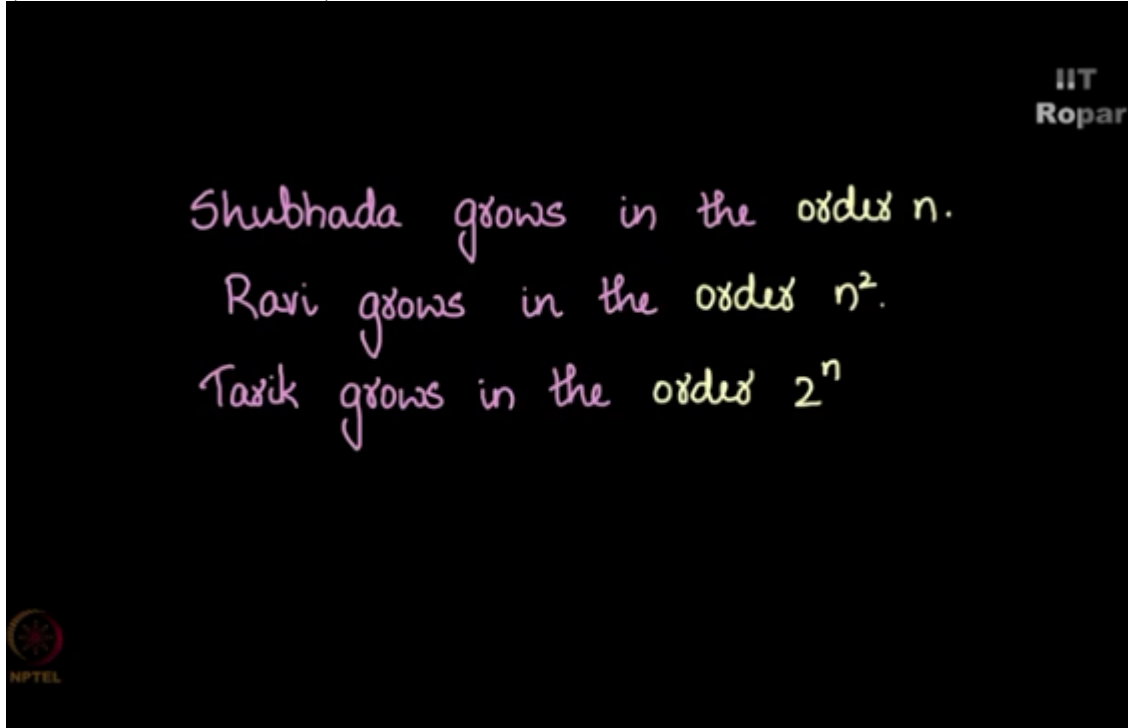 IIT
Ropar
Shubhada grows in the order n.
Ravi grows in the order n².
Tarik grows in the order 2ⁿ
NPTEL